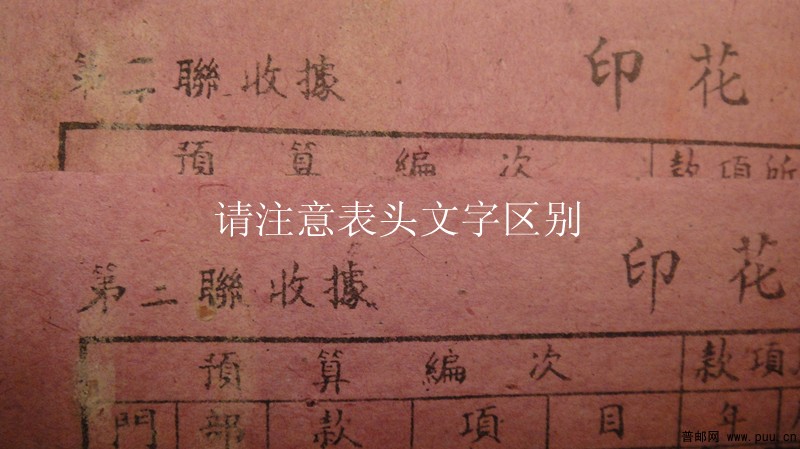 第二聯收據 印花
預算編次 款項所
请注意表头文字区别
第二聯收據 印花
預算編次 款項
門 部 款 項 目 年
普邮网 www.puu.cn